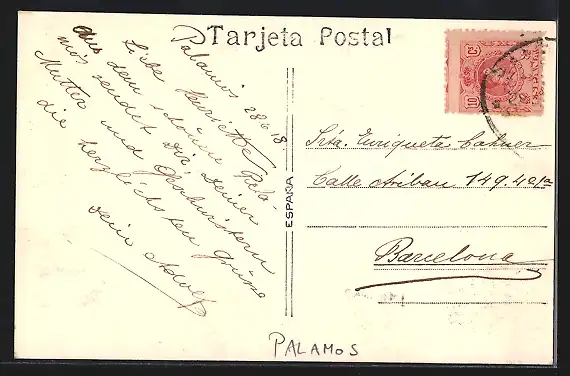 Tarjeta Postal
Palamos 28/6 18
Liebe Henriette
Aus dem schönen Pala-
mos sendet Dir, Deiner
Mutter und Geschwistern
die herzlichsten Grüsse
dein Adolf
ESPAÑA
10 10
Srta. Enriqueta Cahner
Calle Aribau 149. 4o 1a
Barcelona
PALAMOS